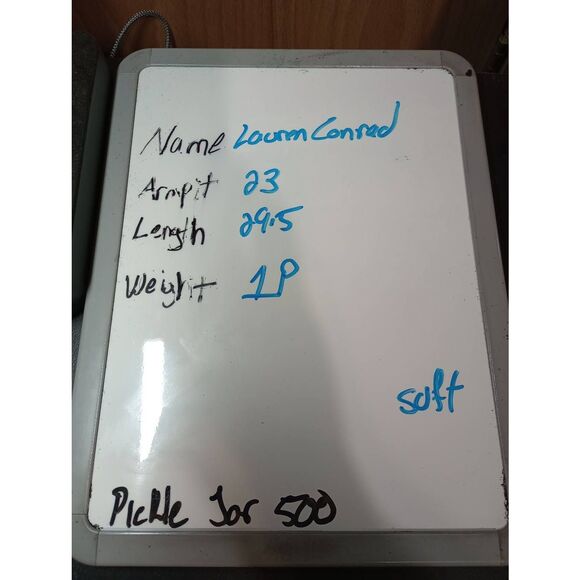 Name Lauren Conrad
Armpit 23
Length 29.5
Weight 1P
soft
Pickle Jar 500